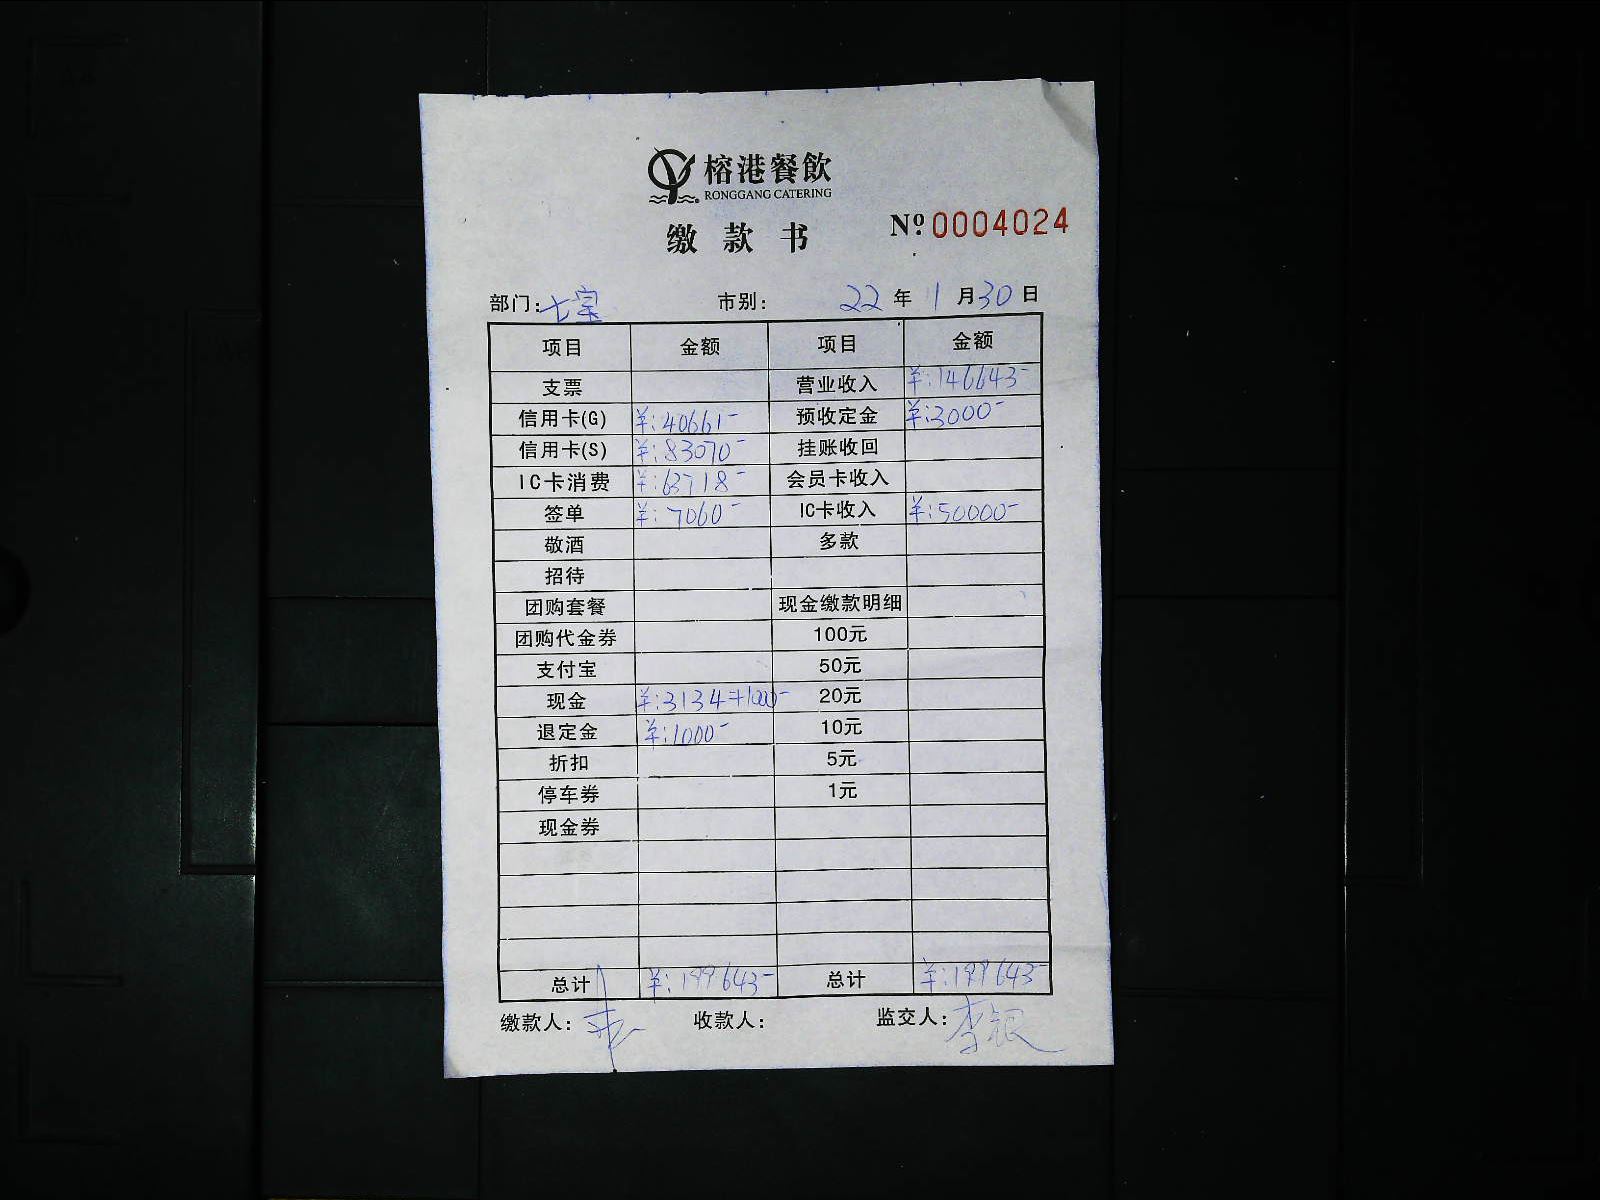 榕港餐飲
RONGGANG CATERING
缴款书 Nº 0004024
部门: 七宝 市别: 22年 1月30日
项目 金额 项目 金额
支票 营业收入 ¥:146643-
信用卡(G) ¥:40661- 预收定金 ¥:3000-
信用卡(S) ¥:83070- 挂账收回
IC卡消费 ¥:63718- 会员卡收入
签单 ¥:7060- IC卡收入 ¥:50000-
敬酒 多款
招待
团购套餐 现金缴款明细
团购代金券 100元
支付宝 50元
现金 ¥:3134+1000- 20元
退定金 ¥:1000- 10元
折扣 5元
停车券 1元
现金券
总计 ¥:199643- 总计 ¥:199643-
缴款人: 收款人: 监交人: 李银